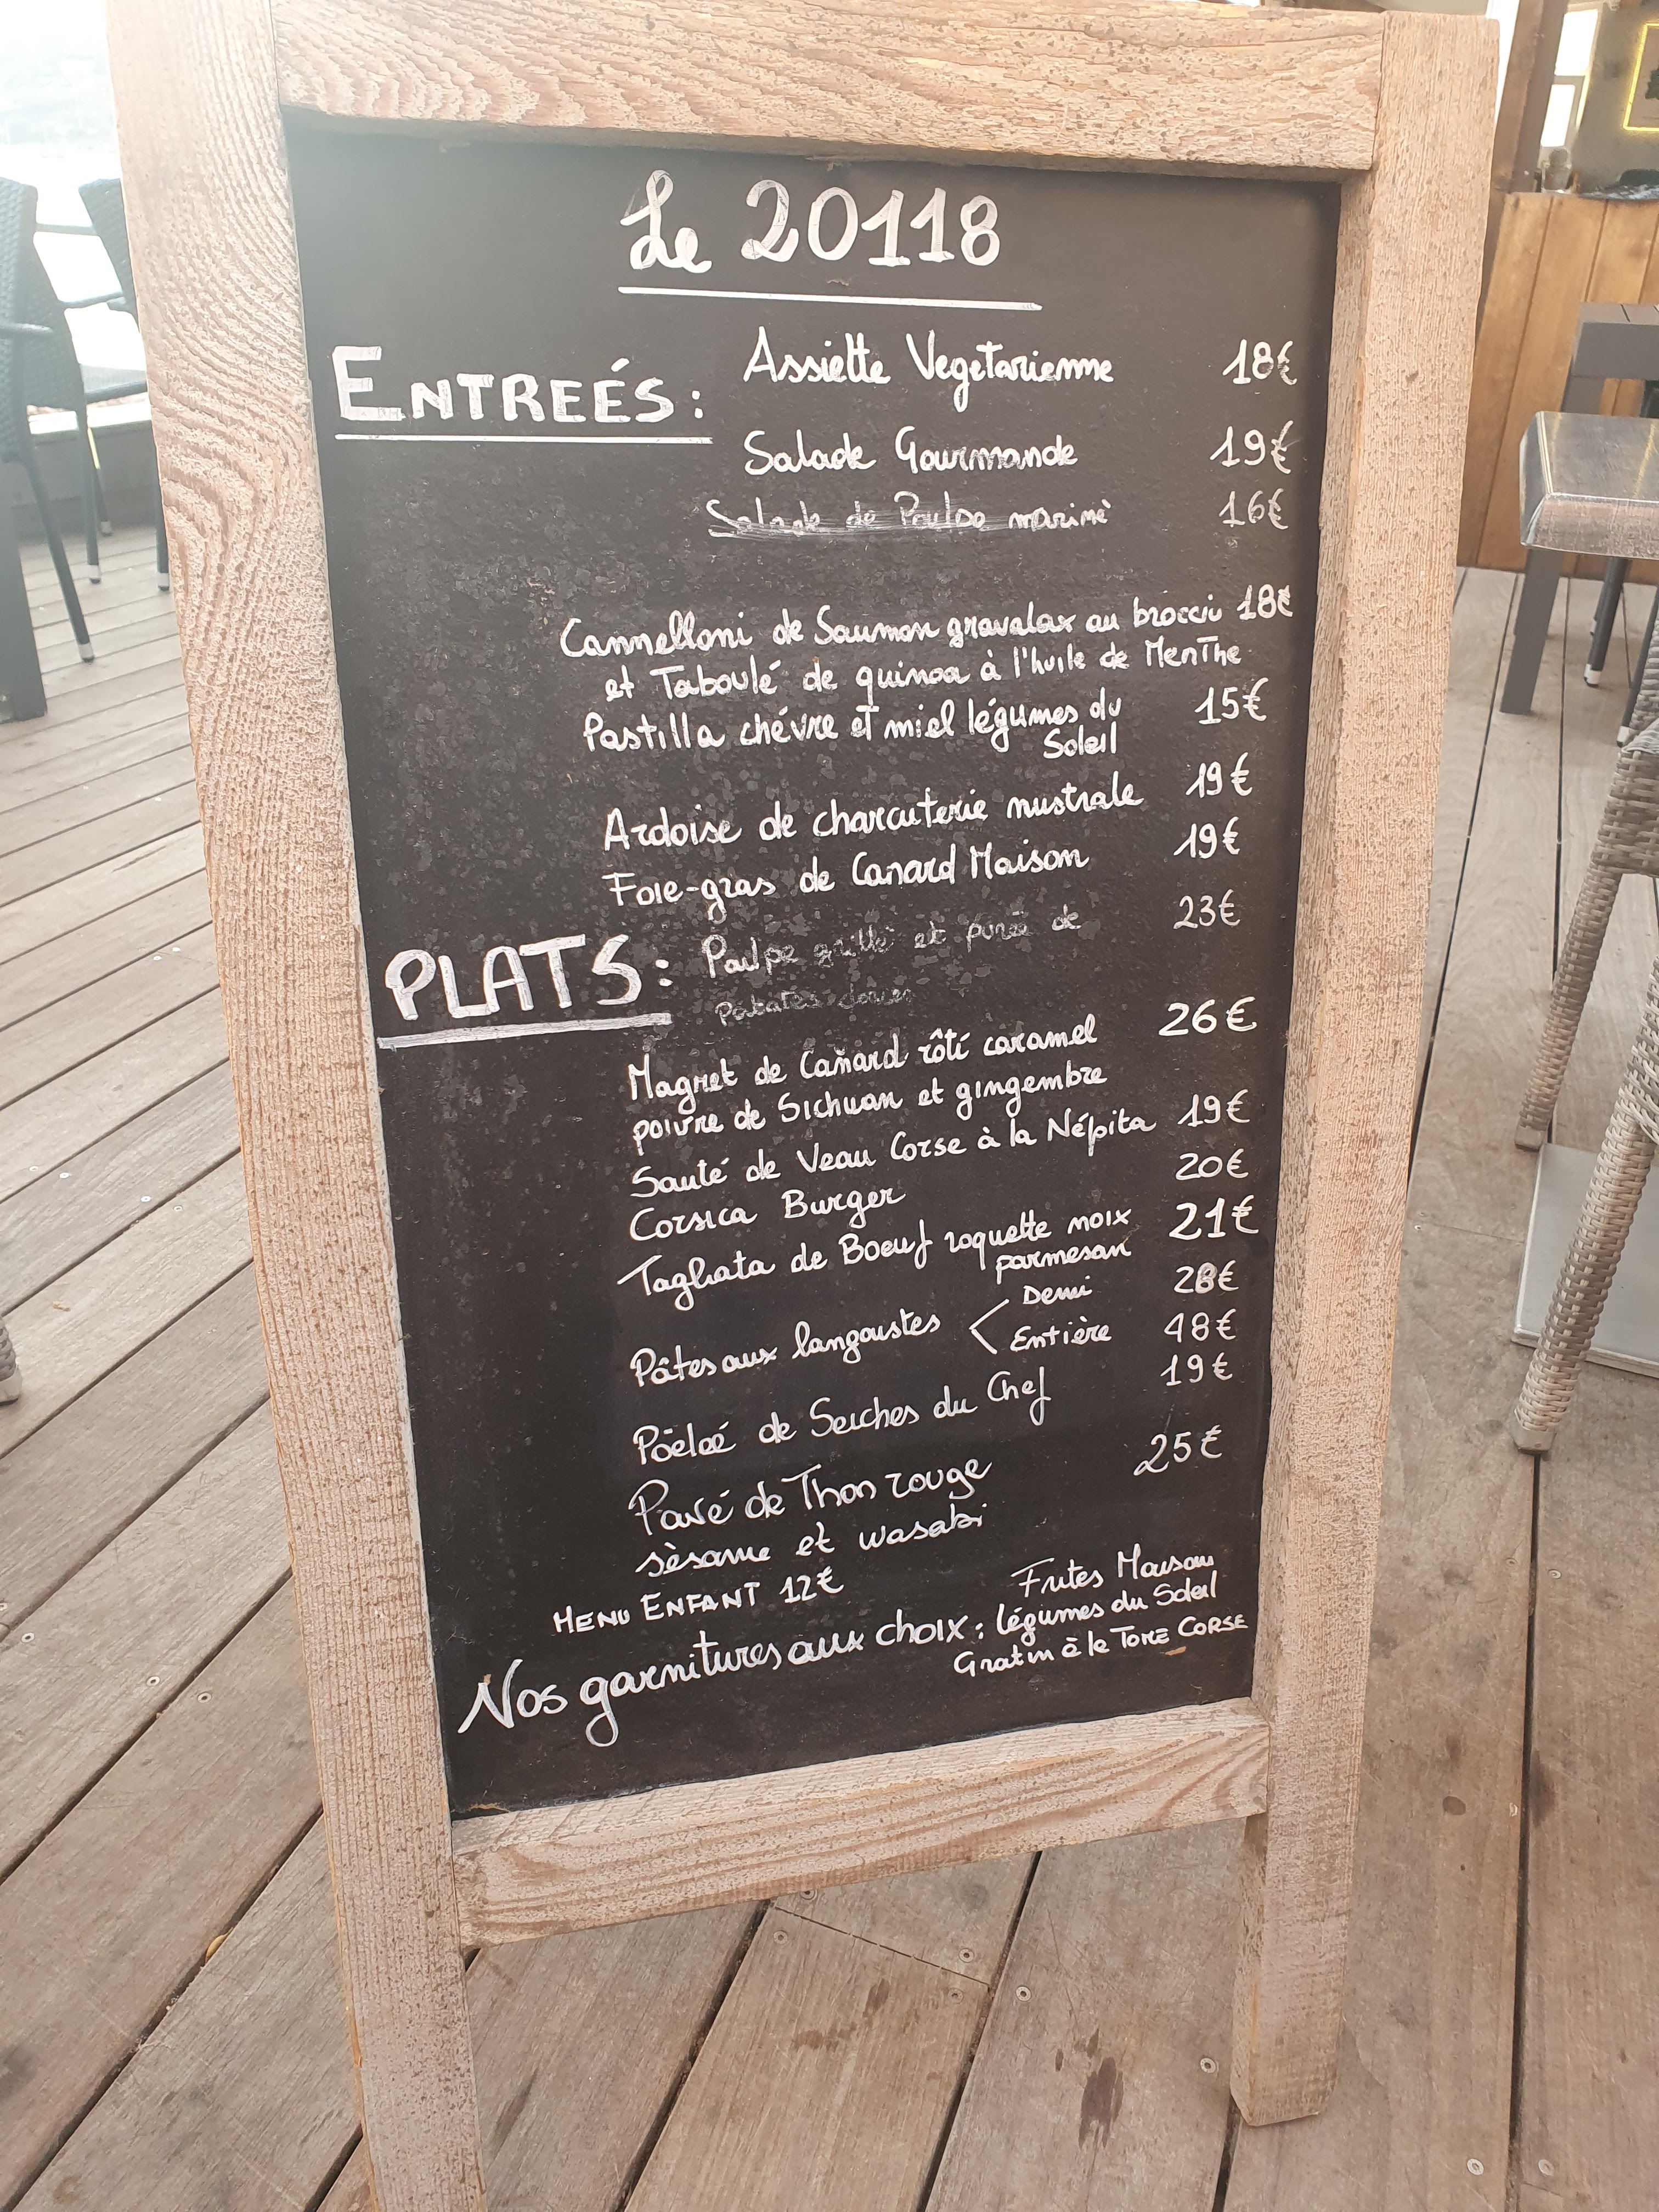 Le 20118
ENTREÉS:
Assiette Vegetarienne 18€
Salade Gourmande 19€
Salade de Poulpe marinè 16€
Cannelloni de Saumon gravalax au brocciu 18€
et Taboulé de quinoa à l'huile de Menthe
Pastilla chévre et miel légumes du 15€
Soleil
Ardoise de charcuterie nustrale 19€
Foie-gras de Canard Maison 19€
PLATS:
Poulpe grillé et purée de 23€
Patates douces
Magret de Canard rôti caramel 26€
poivre de Sichuan et gingembre
Sauté de Veau Corse à la Népita 19€
Corsica Burger 20€
Tagliata de Boeuf roquette noix 21€
parmesan
Pâtes aux langoustes < Demi 28€
Entière 48€
Pöelée de Seiches du Chef 19€
Pavé de Thon rouge 25€
sèsame et wasabi
MENU ENFANT 12€
Nos garnitures aux choix: Frites Maison
légumes du Soleil
Gratin à la TOME CORSE